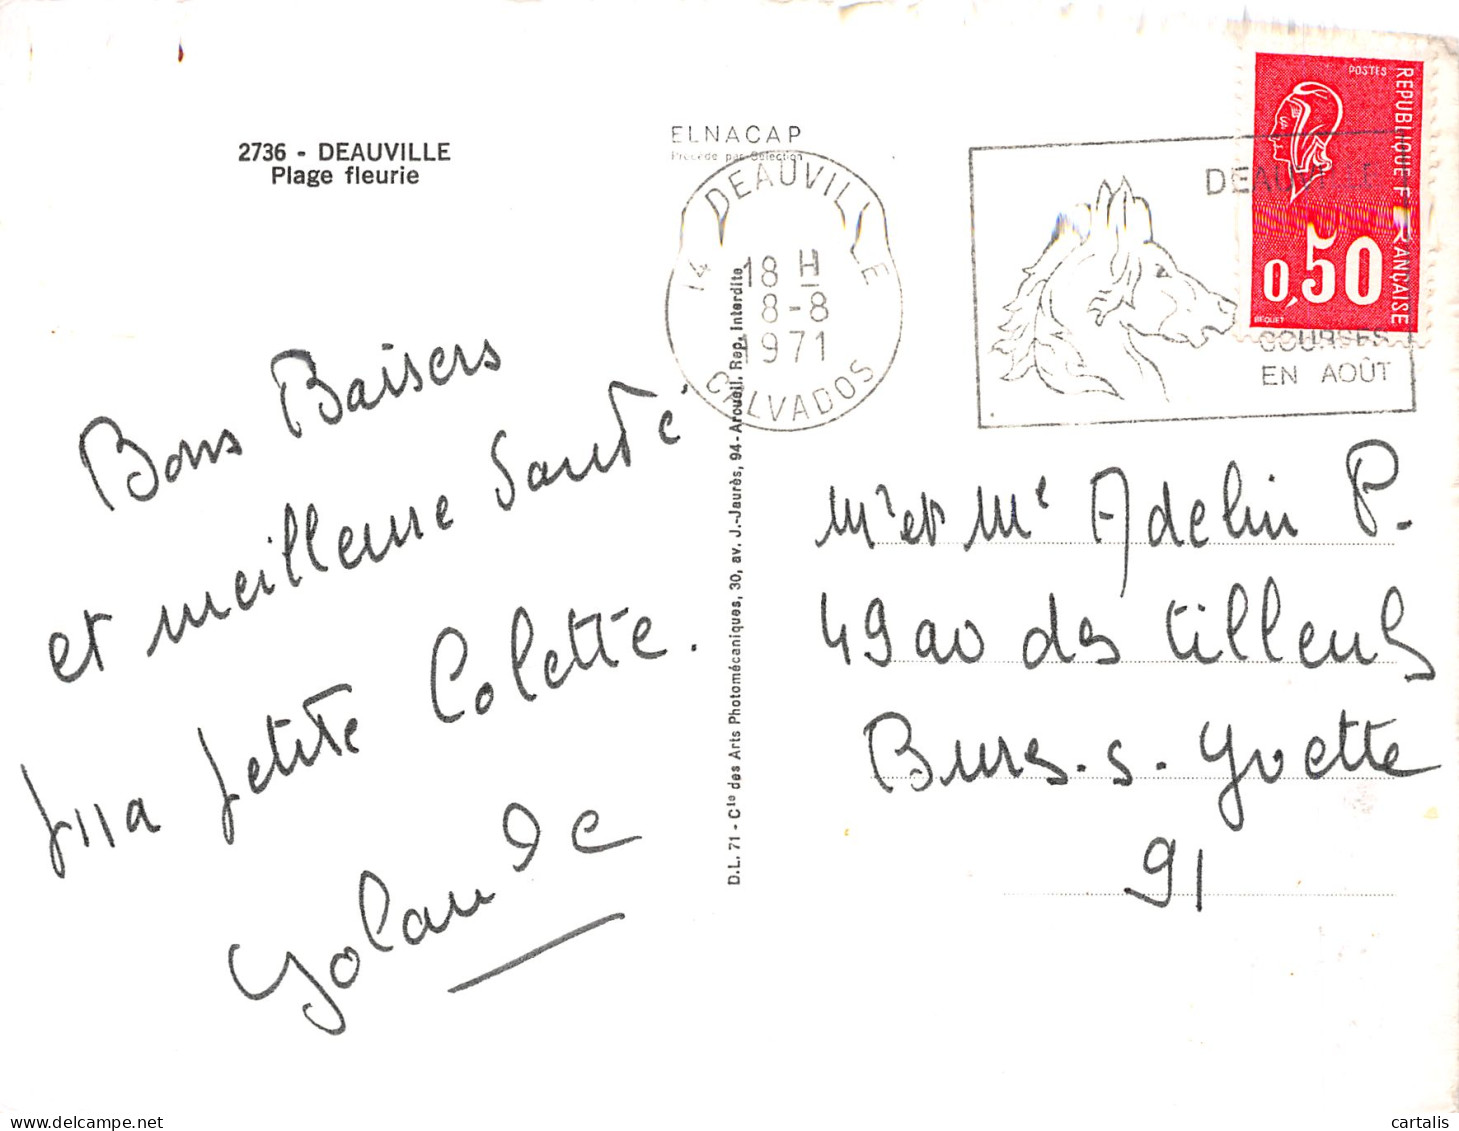 2736 - DEAUVILLE
Plage fleurie
ELNACAP
Procédé par Sélection
14 DEAUVILLE
18 H
8-8
1971
CALVADOS
DEAUVILLE
COURSES
EN AOÛT
POSTES
REPUBLIQUE FRANÇAISE
0,50
BEQUET
Bons Baisers
et meilleure Santé
ma petite Colette.
Yolande
D.L. 71 - Cie des Arts Photomécaniques, 30, av. J.-Jaurès, 94-Arcueil. Rep. Interdite
Mr et Me Adelin P.
49 av des tilleuls
Bures. s. Yvette
91
cartalis